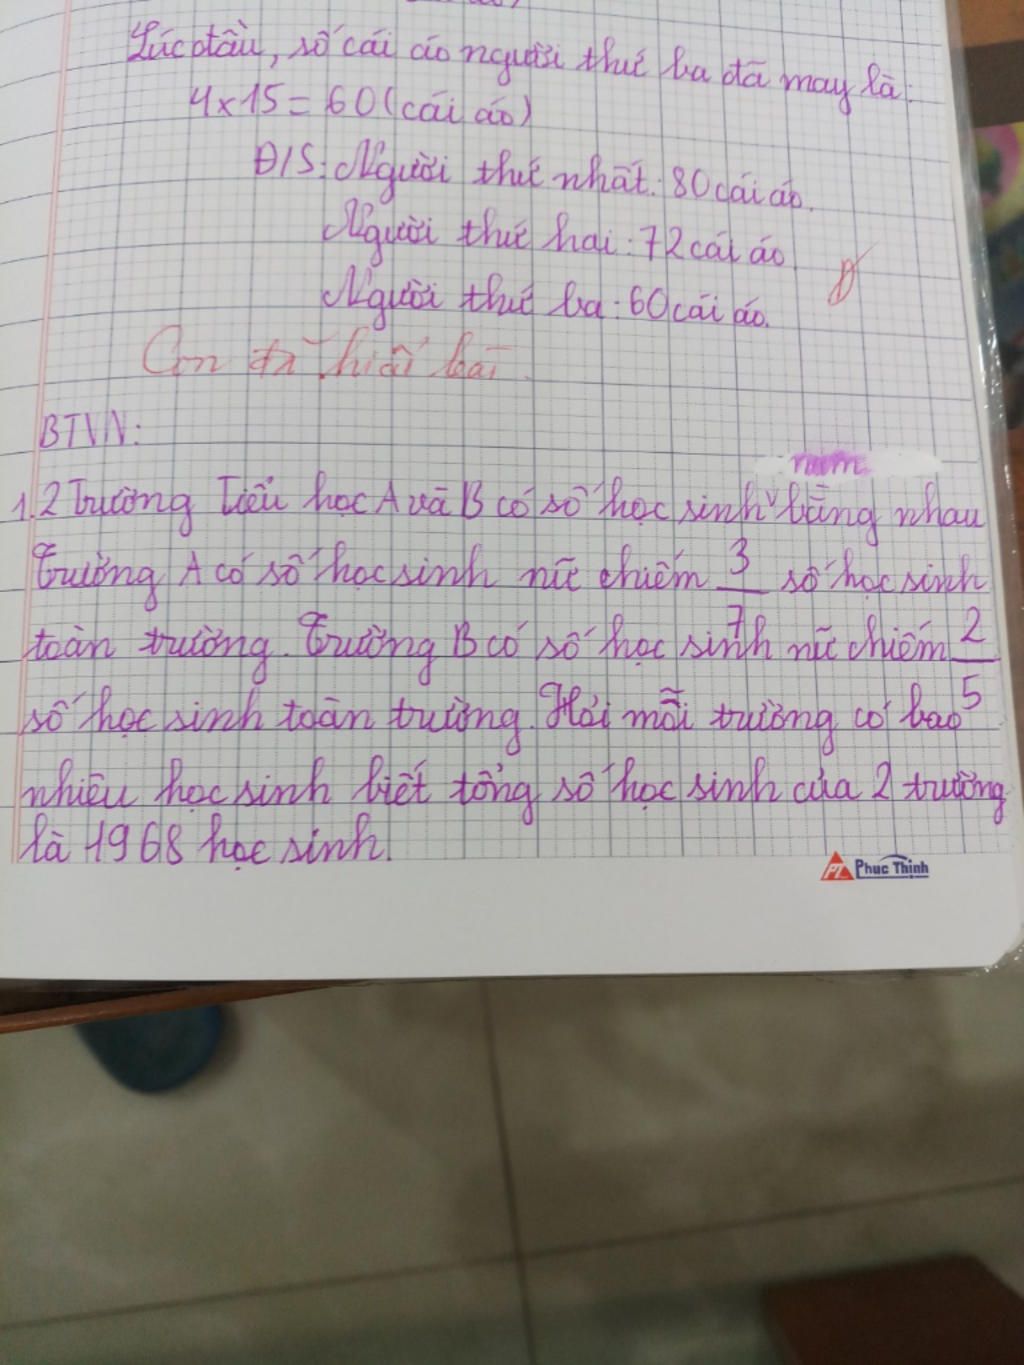 Lúc đầu, số cái áo người thứ ba đã may là:
4 x 15 = 60 (cái áo)
Đ/S: Người thứ nhất: 80 cái áo.
Người thứ hai: 72 cái áo
Người thứ ba: 60 cái áo.
Con đã hiểu bài.
BTVN:
nam
1. 2 Trường Tiểu học A và B có số học sinh bằng nhau
Trường A có số học sinh nữ chiếm 3/7 số học sinh
toàn trường. Trường B có số học sinh nữ chiếm 2/5
số học sinh toàn trường. Hỏi mỗi trường có bao
nhiêu học sinh biết tổng số học sinh của 2 trường
là 1968 học sinh.
PT Phuc Thinh